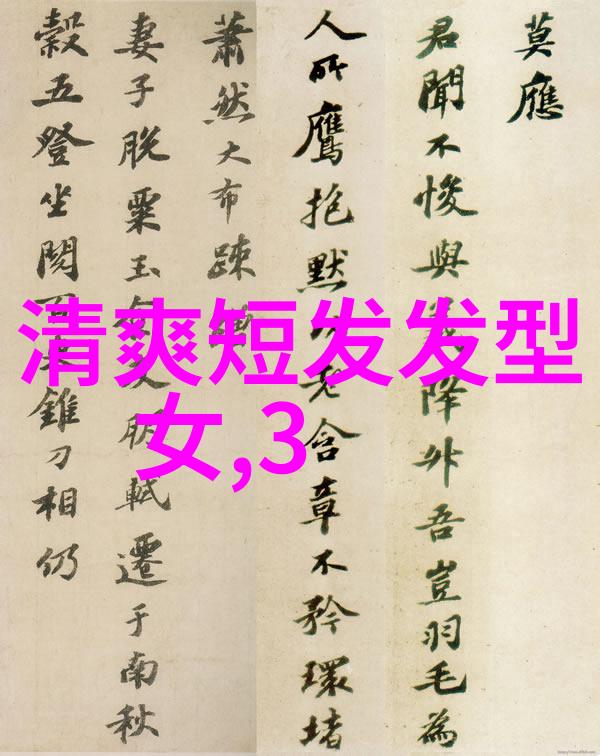 清爽短发发型
女,3
莫應
君聞不悛與降升吾豈羽毛為
人所鷹抱默老含章不矜環堵
蕭然大布疎
妻子脫粟玉友朋軾遷于南秋
穀五登坐閱錐刀相仍